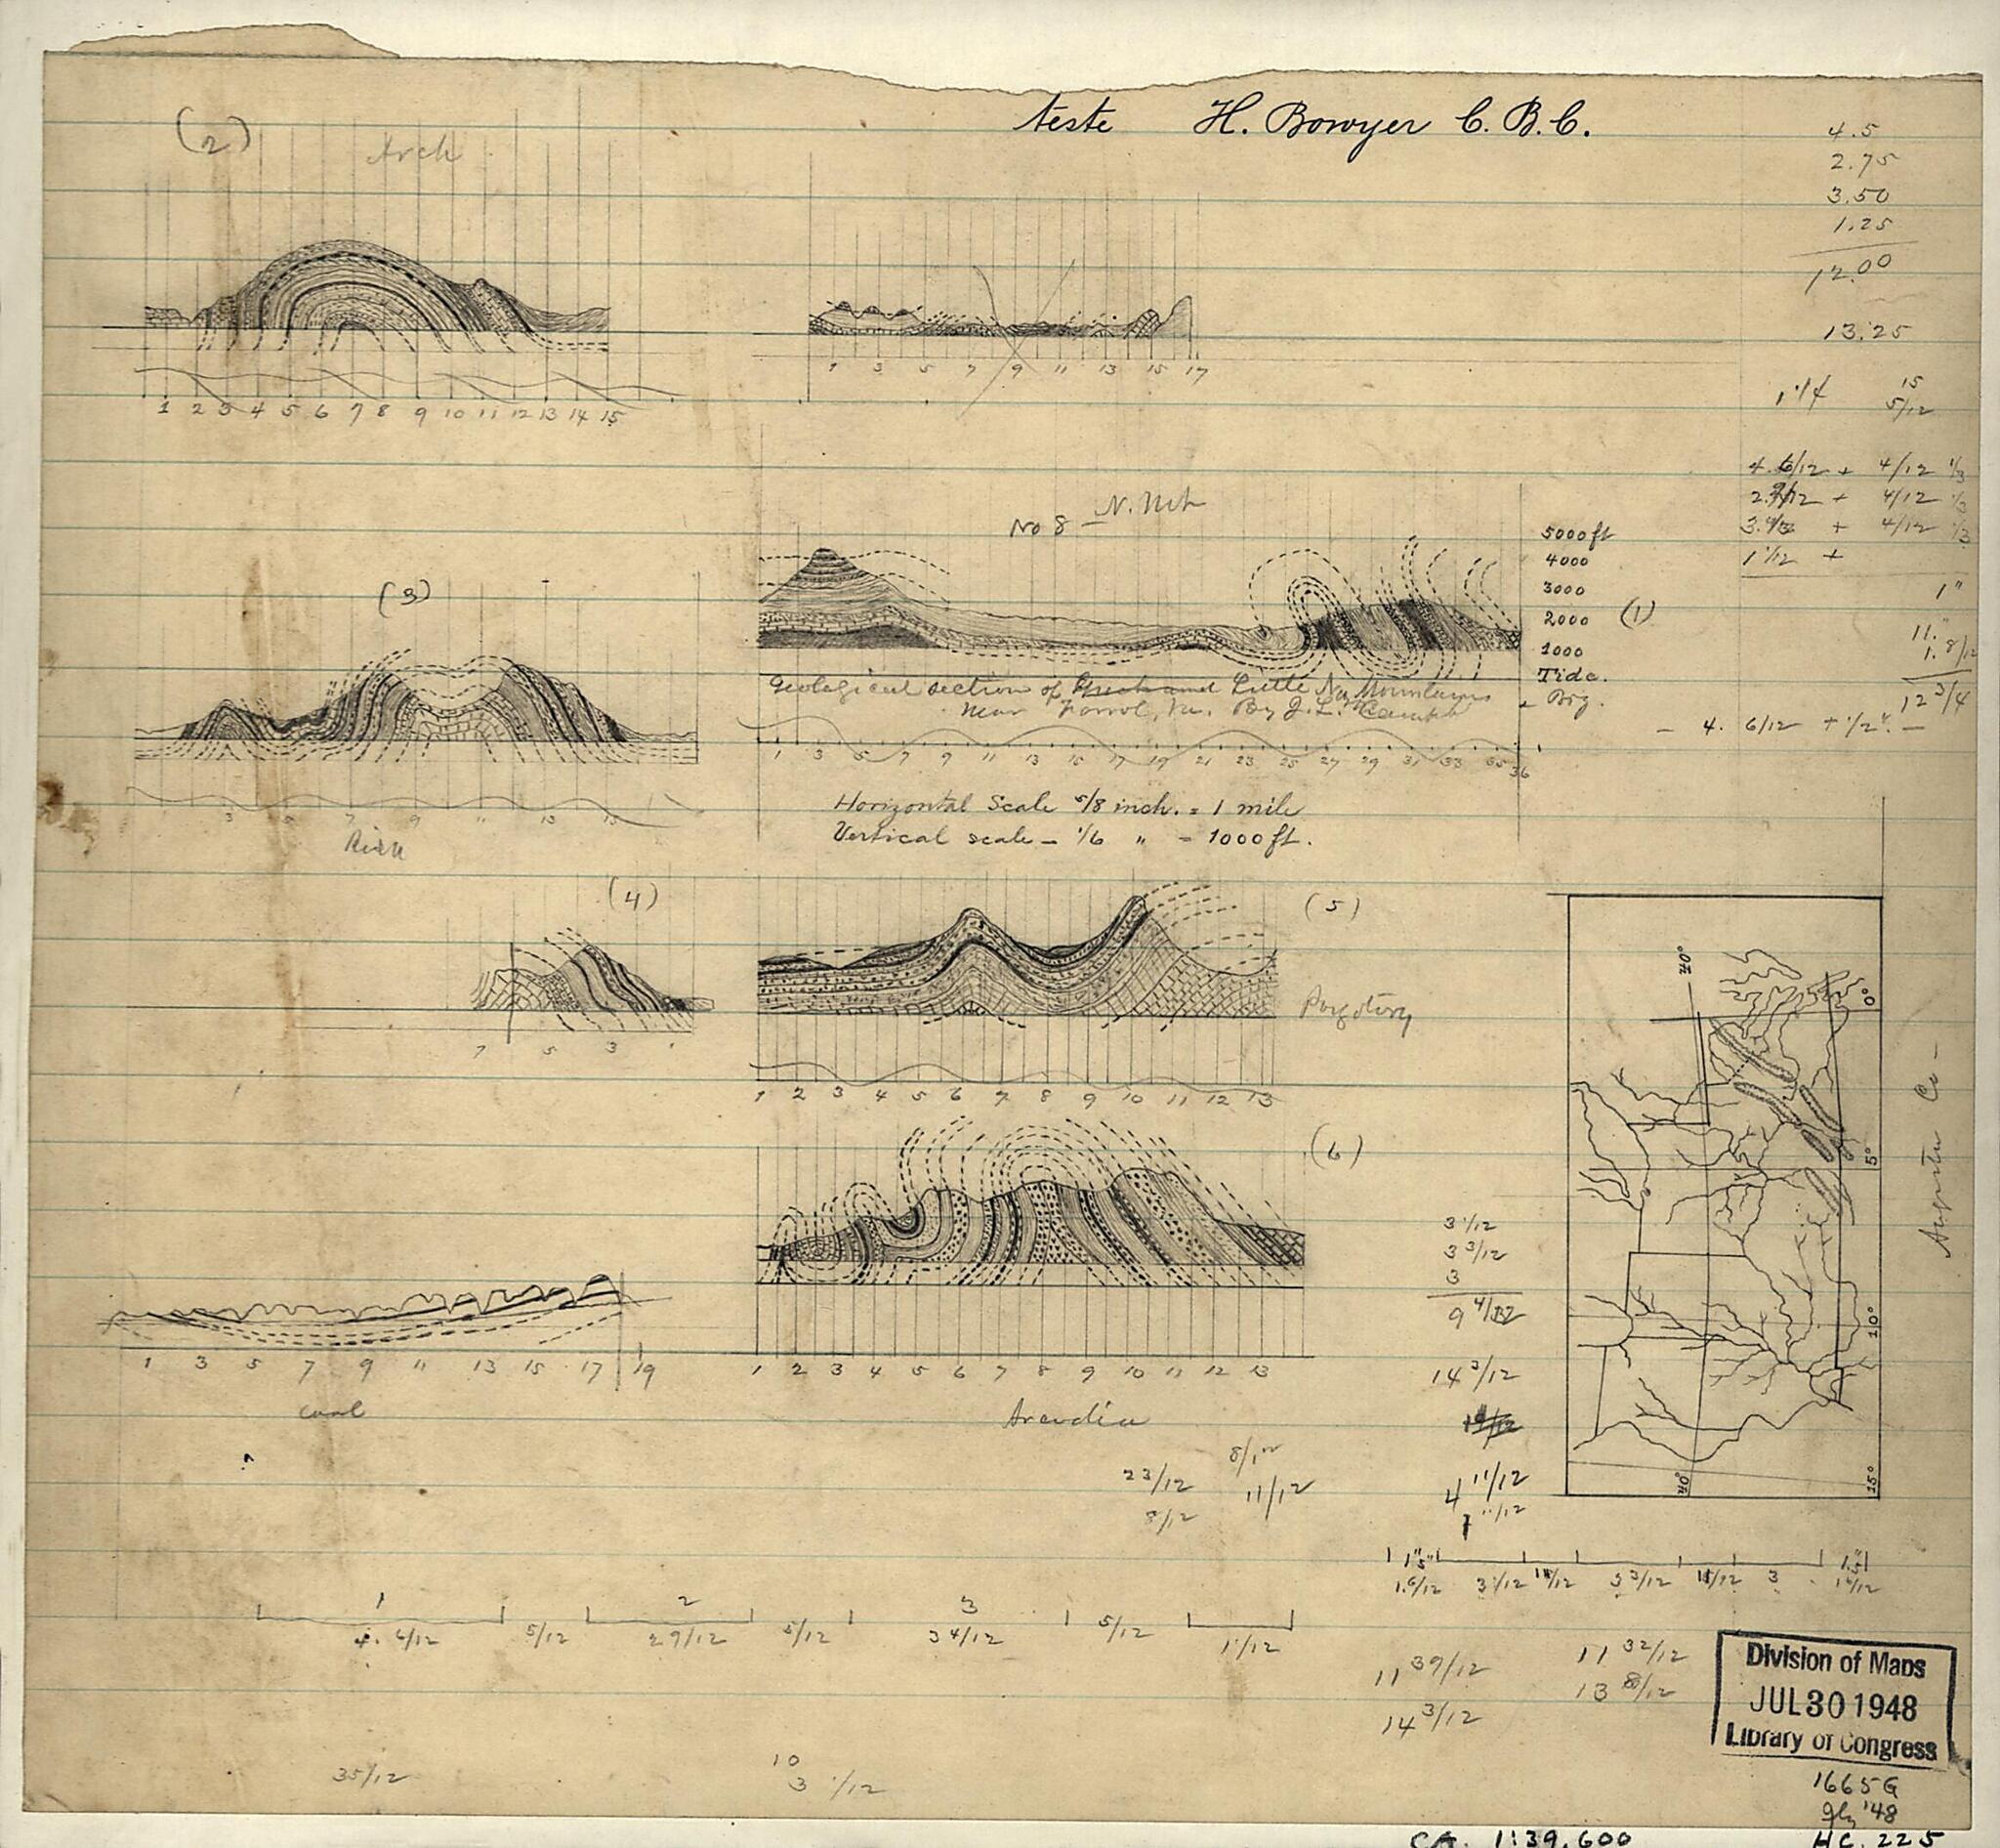 teste H. Bowyer C. B. C.
(2)
Arch
1 2 3 4 5 6 7 8 9 10 11 12 13 14 15
1 3 5 7 9 11 13 15 17
4.5
2.75
3.50
1.25
12.00
13.25
1 1/4
15
5/12
4 6/12 + 4/12 1/3
4/12 1/3
+ 4/12 1/3
1 1/12 +
1"
11."
1. 8/12
12 3/4
- 4. 6/12 + 1/2". -
No 8 - N. Mt
5000 ft
4000
3000
2000
1000
Tide.
(1)
Geological section of Little No. Mountains
Near By J. L. Campbell
1 3 5 7 9 11 13 15 17 19 21 23 25 27 29 31 33 35 36
Horizontal Scale 5/8 inch. = 1 mile
Vertical scale - 1/6 " = 1000 ft.
(3)
3 5 7 9 11 13 15
(4)
7 5 3 1
(5)
Purgatory
1 2 3 4 5 6 7 8 9 10 11 12 13
(6)
1 2 3 4 5 6 7 8 9 10 11 12 13
Arcadia
1 3 5 7 9 11 13 15 17 19
Coal
40°
0°
5°
10°
15°
40°
Augusta Co -
3 1/12
3 3/12
3
9 4/12
14 3/12
4 11/12
11/12
23/12
8/12
8/12
11/12
1"5" 1.5"
1.6/12 3 1/12 11/12 3 3/12 11/12 3 1 6/12
1 2 3
4. 6/12 5/12 2 9/12 5/12 3 4/12 5/12 1 1/12
11 39/12
14 3/12
11 32/12
13 8/12
35/12
10
3 1/12
Division of Maps
JUL 30 1948
Library of Congress
1665 G
'48
CA. 1:39,600
HC. 225